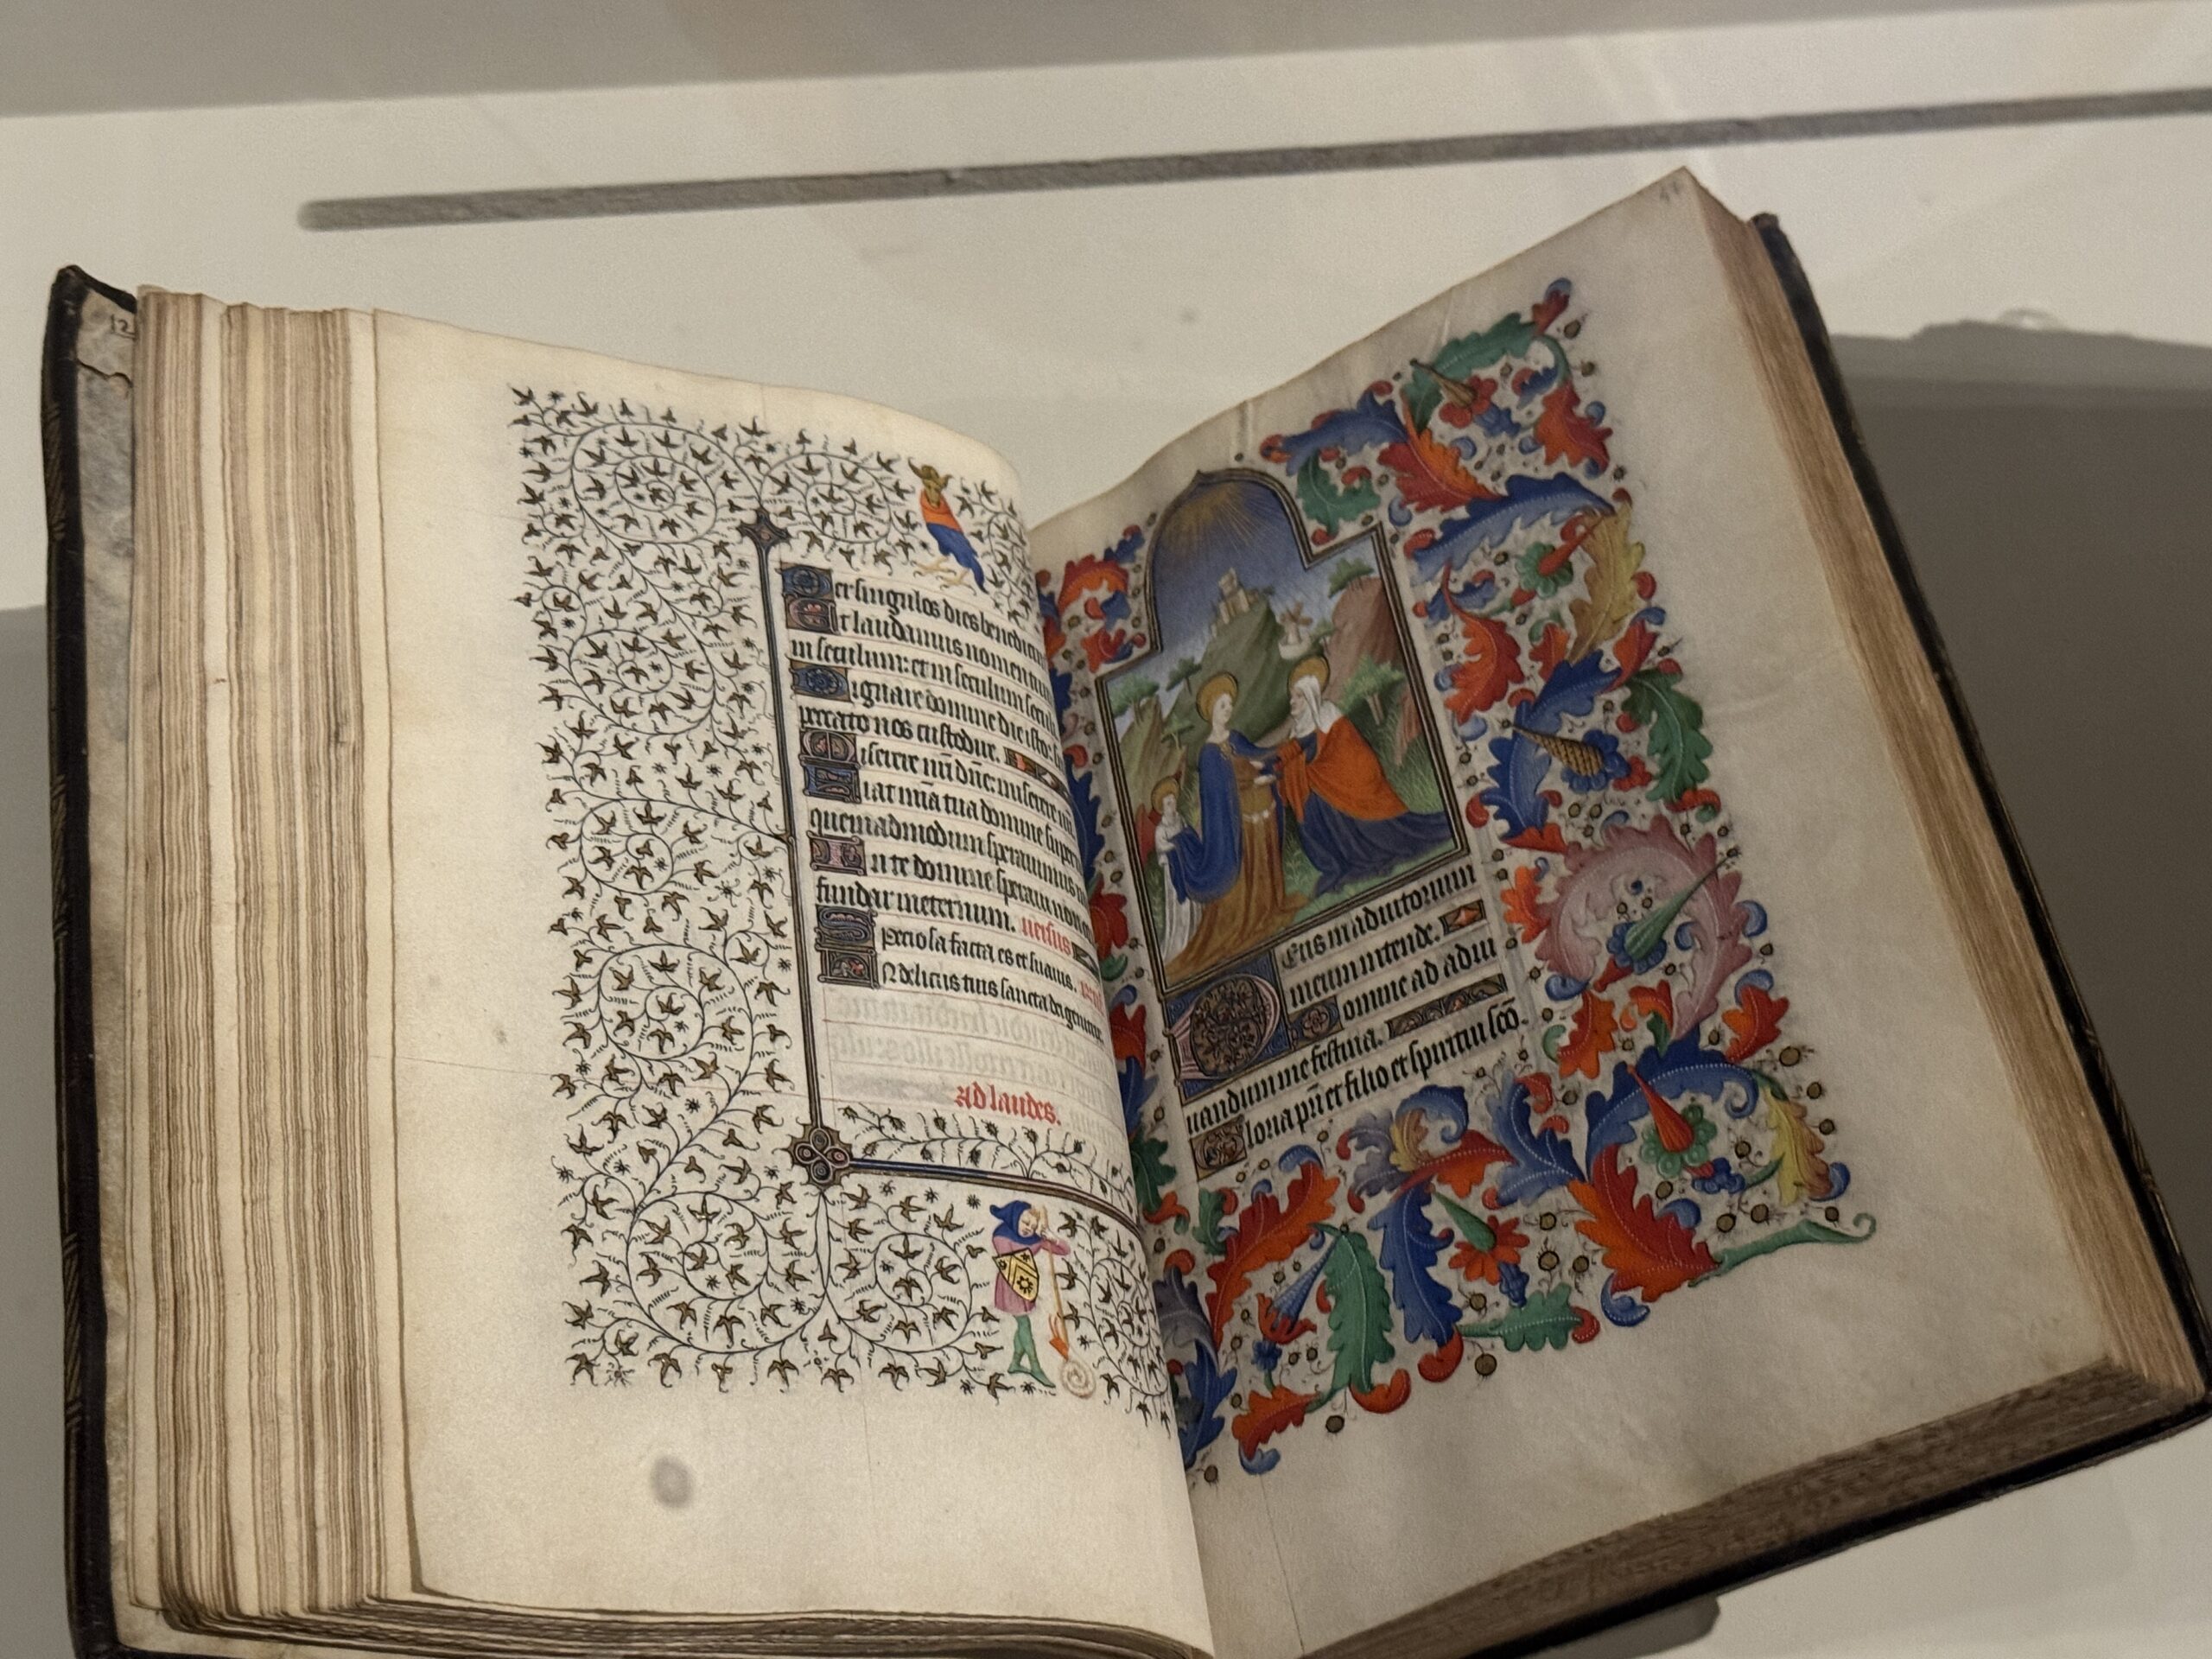 Per singulos dies benedicim
Et laudamus nomen tuum
in seculum: et in seculum seculi
Dignare domine die isto: s
peccato nos custodire.
Miserere nr̄i dn̄e: miserere nr̄i
Fiat mīa tua domine super
quemadmodum sperauimus
In te domine speraui non con
fundar in eternum. uersus
Speciosa facta es et suauis.
In delicus tuis sancta dei genitrix.
Ad laudes.
Deus in adiutorium
meum intende.
Domine ad adiu
uandum me festina.
Gloria pr̄i et filio et spiritui sc̄o.